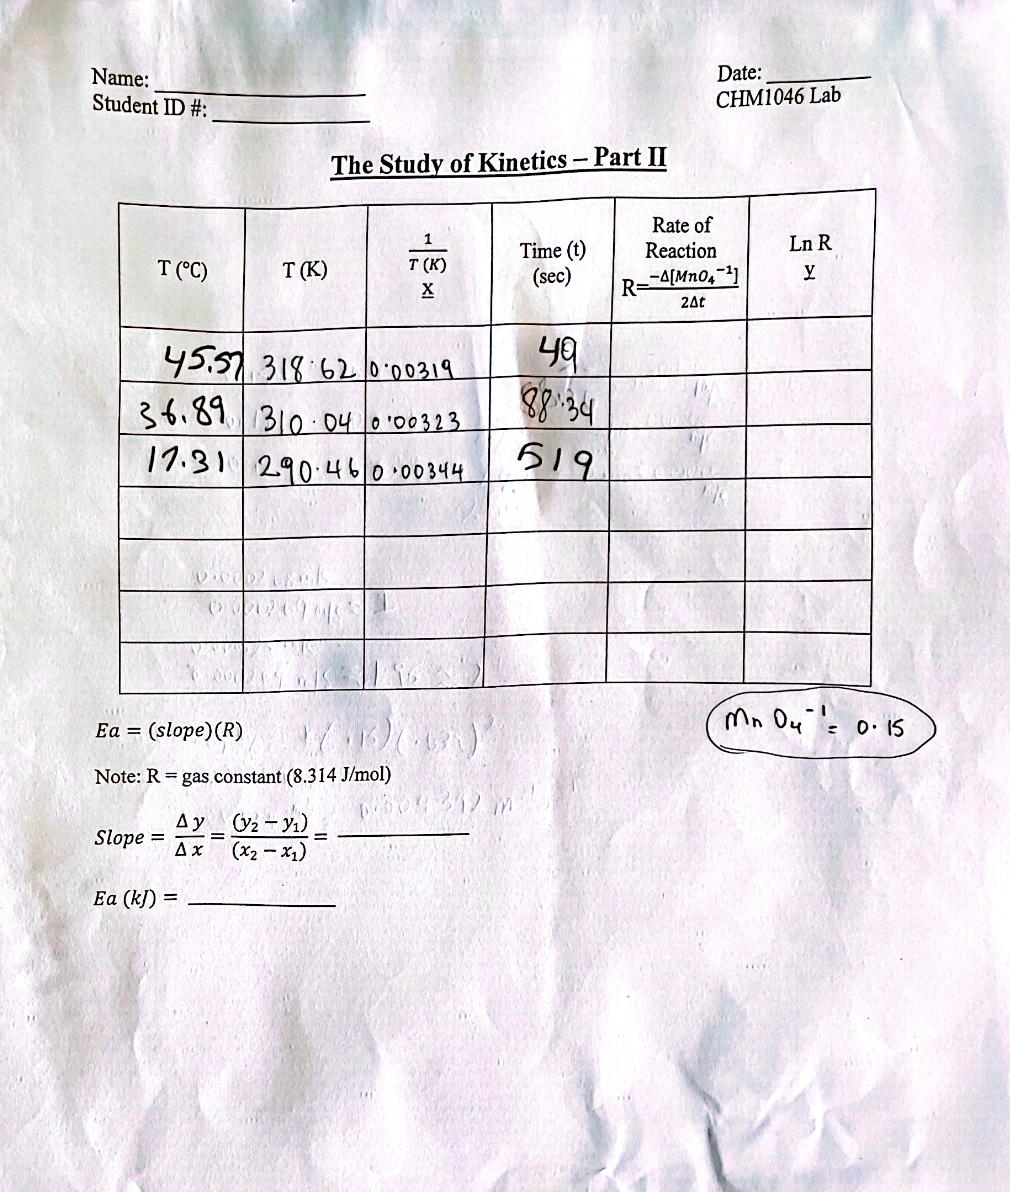 Name: ____________
Date: ____________
Student ID #: ____________
CHM1046 Lab
The Study of Kinetics – Part II
T (°C) T (K) 1/T (K) X Time (t) (sec) Rate of Reaction R= −Δ[MnO₄⁻¹]/2Δt Ln R y
45.57 318.62 0.00319 49
36.89 310.04 0.00323 88.34
17.31 290.46 0.00344 519
Ea = (slope)(R)
MnO₄⁻¹ = 0.15
Note: R = gas constant (8.314 J/mol)
Slope = Δy/Δx = (y₂ − y₁)/(x₂ − x₁) = ____________
Ea (kJ) = ____________